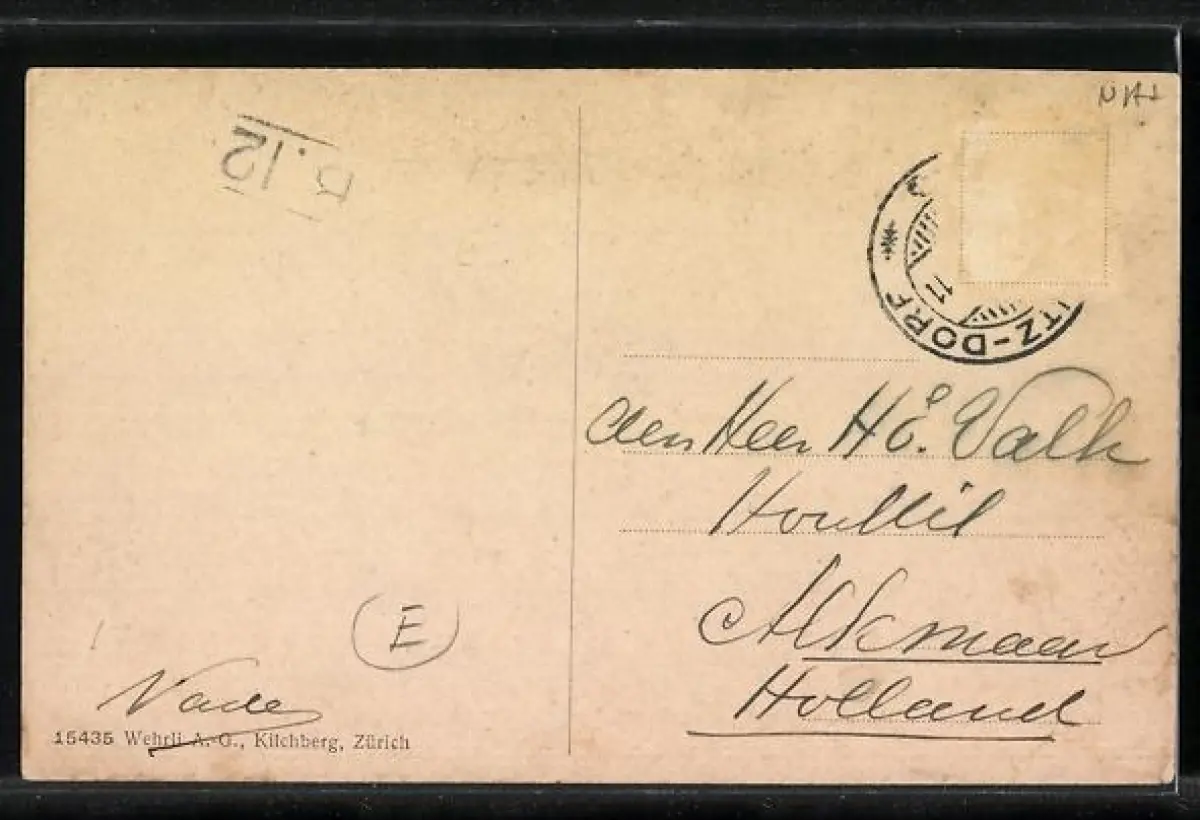 B.12
ITZ-DORF
11
den Heer H E. Valk
Houttil
Alkmaar
Holland
E
Vader
15435 Wehrli A.-G., Kilchberg, Zürich